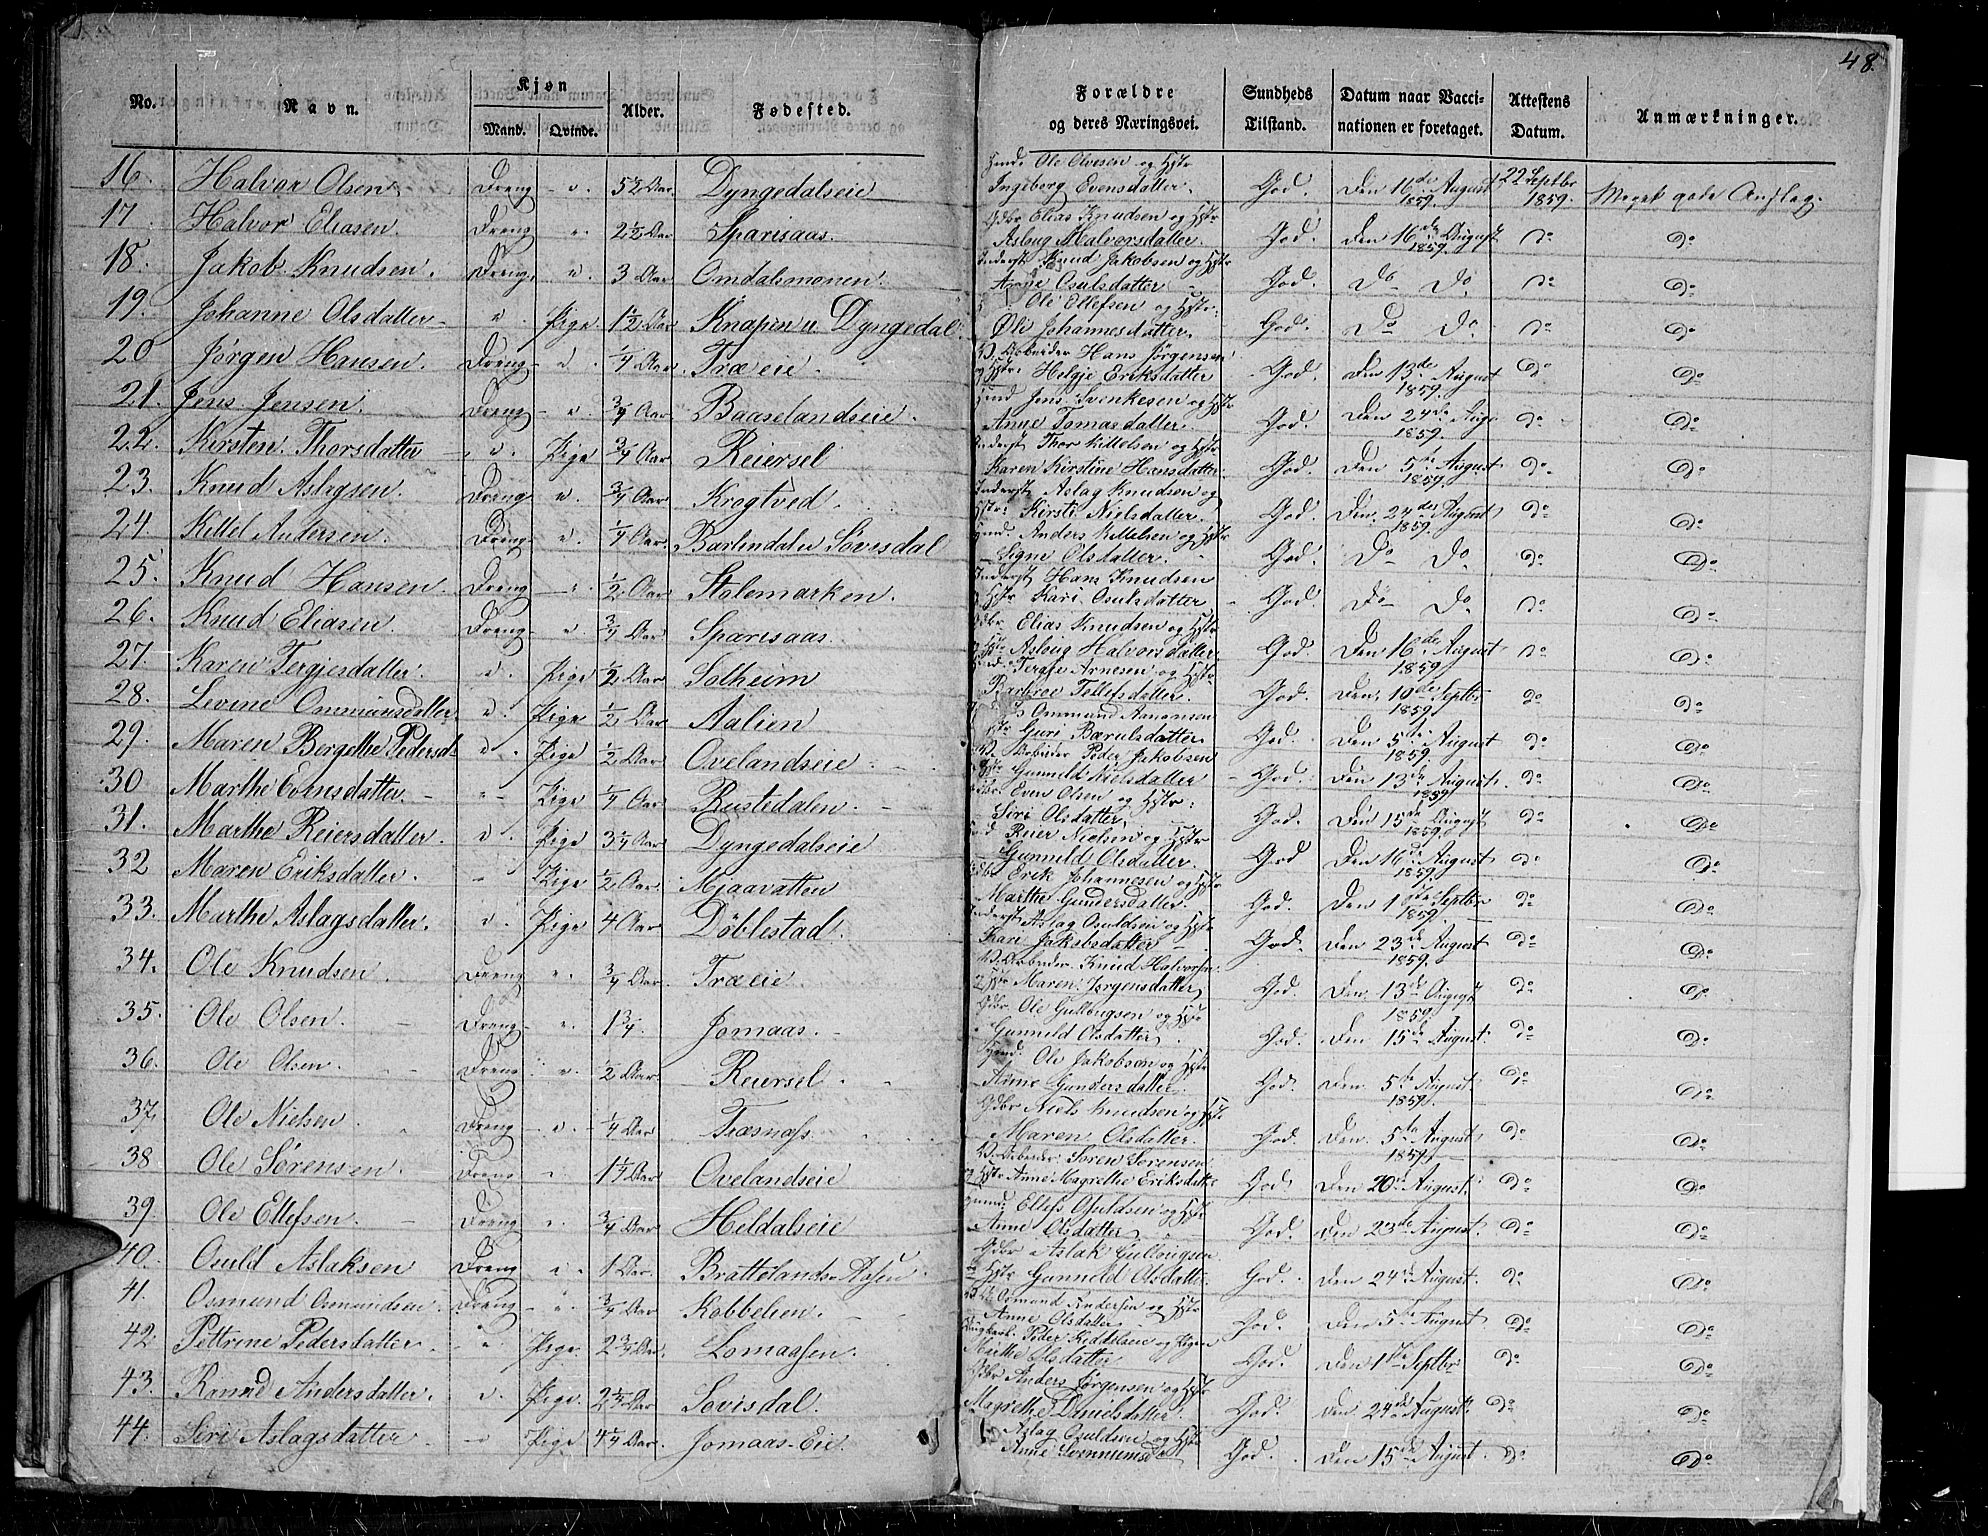 48.
No. Navn. Kjøn Mand. Qvinde. Alder. Fødested. Forældre og deres Næringsvei. Sundheds Tilstand. Datum naar Vaccinationen er foretaget. Attestens Datum. Anmærkninger.
16. Halvor Olsen Dreng - " . 5½ Aar. Dyngedalseie Huusm. Ole Olvesen og Hstr Ingeborg Evensdatter. God. Den 16de August 1859. 22 Septbr 1859. Meget gode Anslag.
17 Halvor Eliasen. Dreng " . 2½ Aar Sparisaas. Gdbr Elias Knudsen og Hstr Aslaug Halvorsdatter. God. Den 16de August 1859. do do
18. Jakob Knudsen. Dreng. " . 3 Aar Omdalsmonen. Inderst Knud Jakobsen og Hstr Anne Osulsdatter God. Do Do do do
19. Johanne Olsdatter " . Pige. 1½ Aar Knapen u. Dyngedal. Ole Ellefsen og Hstr. Øli Johannesdatter. God. Do Do do do
20 Jørgen Hansen. Dreng " . ¼ Aar Træeie. Arbeider Hans Jørgensen og Hstr. Helgje Eriksdatter God. Den 13de August 1859. do do
21. Jens Jensen. Dreng " . ¾ Aar Baaselandseie. Jens Svenkesen og Hstr Anne Tomasdatter. God. Den 24de Augs 1859. do do
22. Kirsten Thorsdatter " . Pige ¾ Aar Reiersel Inderst Thor Kittelsen og Hstr Karen Kirstine Hansdatter. God. Den 5te August 1859. do do
23. Knud Aslagsen. Dreng " . ¾ Aar Krogtved. Inderst Aslag Knudsen og Hstr. Kirsti Nielsdatter. God. Den 24de August 1859. do do
24. Kittel Andersen. Dreng " . ¼ Aar. Bærlindalen Sovisdal Anders Kittelsen og Hstr Signe Olsdatter. God. Do Do do do
25. Knud Hansen. Dreng " . ½ Aar Stolemarken. Inderst Hans Knudsen Hstr Kari Osulsdatter God. Do Do do do
26. Knud Eliasen Dreng " . ¾ Aar Sparisaas. Gdbr Elias Knudsen og Hstr Aslaug Halvorsdatter. God. Den 16de August 1859. do do
27. Karen Tergjesdatter. " . Pige ½ Aar Solheim Tergje Arnesen og Hstr. Barbroe Tellefsdatter. God. Den. 10de Septbr 1859. do do
28. Levine Ommunsdatter " . Pige ½ Aar Aalien Ommund Aanonsen Hstr Guri Bærulsdatter God. Den 5te August 1859. do do
29. Maren Bergethe Pedersd. " . Pige ½ Aar Ovelandseie Arbeider Peder Jakobsen Hstr Gunnild Nielsdatter God. Den 13de August. 1859. do do
30 Marthe Evensdatter. Pige ¼ Aar Rustedalen. Gdbr Even Olsen og Hstr. Siri Olsdatter. God. Den 15de August 1859. do do
31. Marthe Reiersdatter. " . Pige 3¼ Aar Dyngedalseie Reier Nielsen og Hstr Gunnild Olsdatter. God Den 16de August 1859. do do
32 Maren Eriksdatter. Pige ½ Aar Mjaavatten Gdbr Erik Johannesen og Hstr Marthe Gundersdatter. God. Den 1ste Septbr 1859. do do
33. Marthe Aslagsdatter. " . Pige 4 Aar Döblestad. Inderst Aslag Osuldsen og Hstr Kari Jakobsdatter God. Den 23de August 1859. do do
34. Ole Knudsen Dreng " . ¾ Aar. Træeie. Arbeider. Knud Halvorsen Hstr Maren Jørgensdatter God. Den 13de August 1859. do do
35. Ole Olsen. Dreng " . 1¾. Jomaas. Gdbr Ole Gullougsen og Hstr Gunnild Olsdatter God. Den 15de August. do do
36. Ole Olsen Dreng " . ½ Aar. Reiersel. Ole Jakobsen og Hstr Anne Gundersdatter. God. Den 5te August 1859. do do
37. Ole Nielsen Dreng " . ¼ Aar Træsnæss Gdbr Niels Knudsen og Hstr Maren Olsdatter. God. Den 5te August 1859. do do
38 Ole Sörensen. Dreng " 1¼ Aar Ovelandseie Arbeider Sören Sörensen Hstr Anne Magrethe Eriksdatter God Den 20de August. do do
39. Ole Ellefsen. Dreng " . ¾ Aar Heldalseie Ellefs Osuldsen og Hstr Anne Olsdatter God. Den 23de August. do do
40. Osuld Aslaksen Dreng " 1 Aar. Brattelands-Aasen Gdbr Aslak Gullougsen Hstr Gunnild Olsdatter. God. Den 24de August. do do
41. Osmund Osmundsen. Dreng " . ¾ Aar Kobbelien. Osmund Andersen og Hstr Anne Olsdatter God. Den 5te August do do
42. Pettrine Pedersdatter. " Pige. 2¾ Aar. Lomaasen. Ungkarl. Peder Kittelsen og Pigen Marthe Olsdatter God. Den 1ste Septbr do do
43. Ranna Andersdatter. " . Pige. 2¼ Aar Sovisdal. Gdbr Anders Jørgensen og Hstr Magrethe Danielsdatter. God. Den 24de August. do do
44. Siri Aslagsdatter. Pige 4¼ Aar. Jomaas-Eie Aslag Osuldsen og Hstr Anne God. Den 15de August. do do